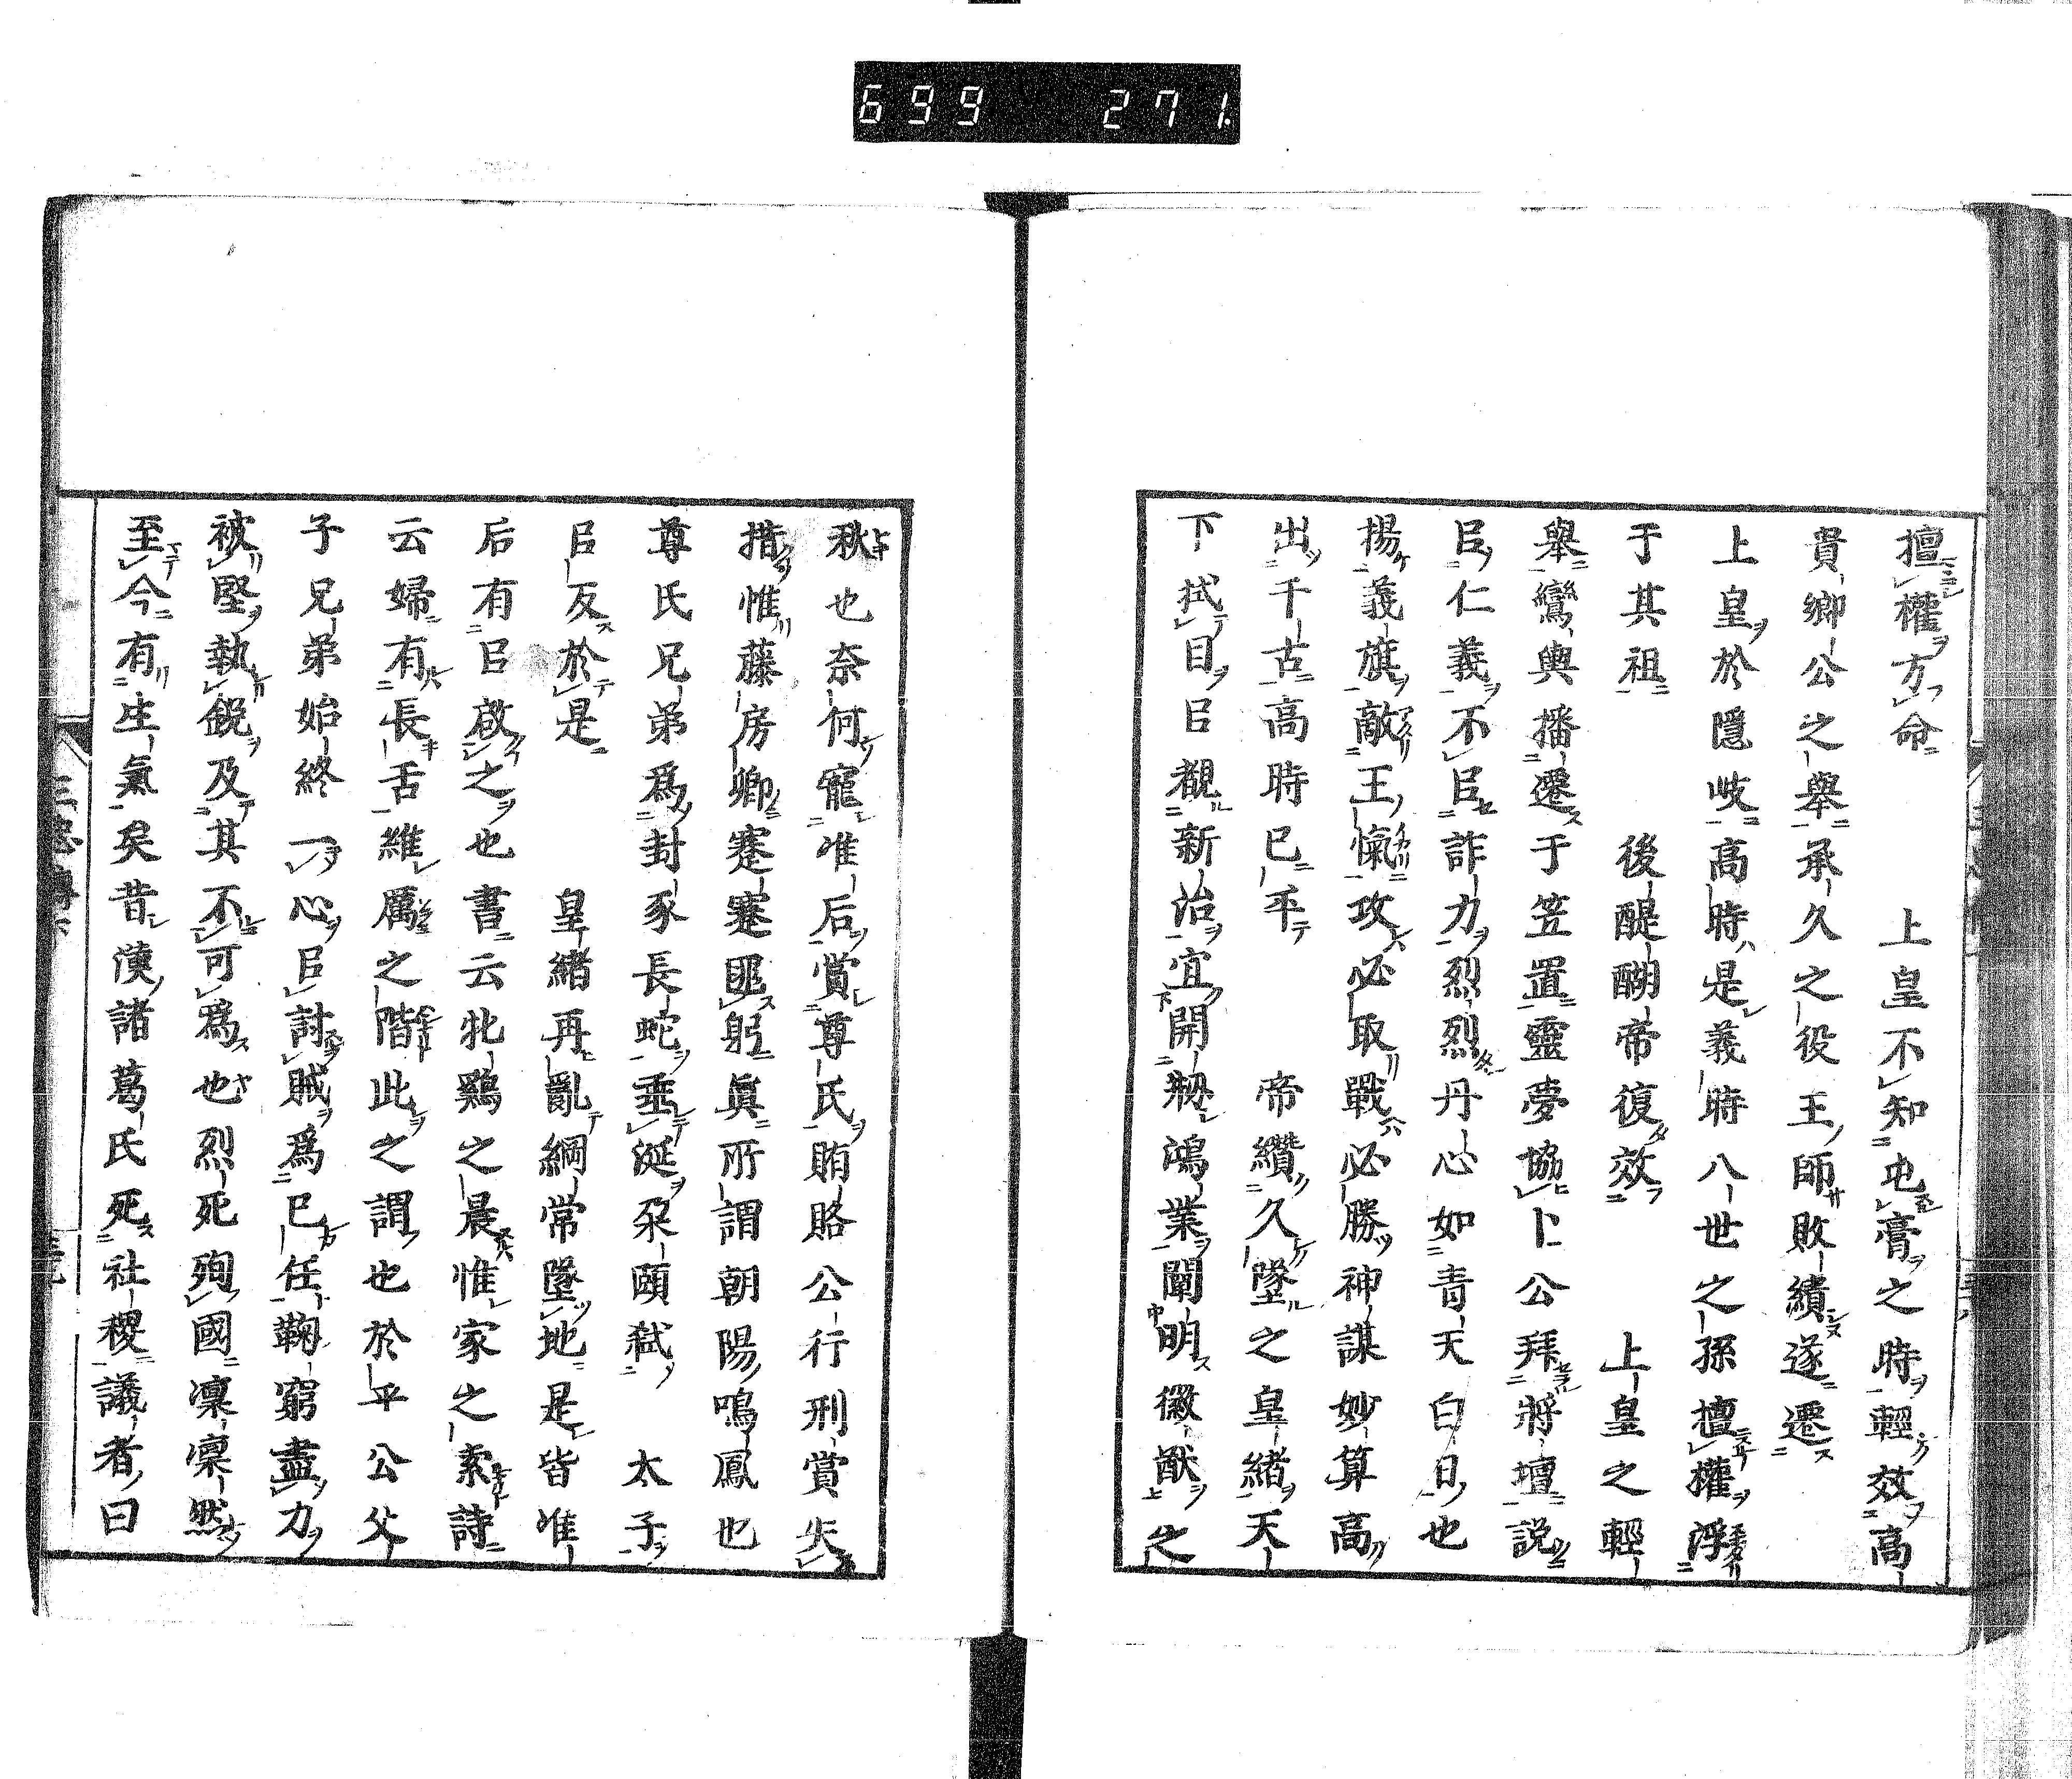 699 271.
擅權方命　上皇不知屯膏之時輕效高
貴鄉公之舉承久之役王師敗績遂遷
上皇於隱岐高時是義時八世之孫擅權浮
于其祖　後醍醐帝復效　上皇之輕
舉鸞輿播遷于笠置靈夢協卜公拜將壇説
㠯仁義不㠯詐力烈烈丹心如青天白日也
揚義旗敵王愾攻必取戰必勝神謀妙算高
出千古高時已平　帝纘久墜之皇緒天
下拭目㠯觀新治宜開剏鴻業闡明徽猷之
秋也奈何寵准后賞尊氏賄賂公行刑賞失
措惟藤房卿蹇蹇匪躬眞所謂朝陽鳴鳳也
尊氏兄弟爲封豕長蛇垂涎朶頤弑　太子
㠯反於是　皇緒再亂綱常墜地是皆准
后有㠯啟之也書云牝鷄之晨惟家之索詩
云婦有長舌維厲之階此之謂也於平公父
子兄弟始終一心㠯討賊爲已任鞠窮盡力
被堅執鋭及其不可爲也烈死殉國凛凛然
至今有生氣矣昔漢諸葛氏死社稷議者曰